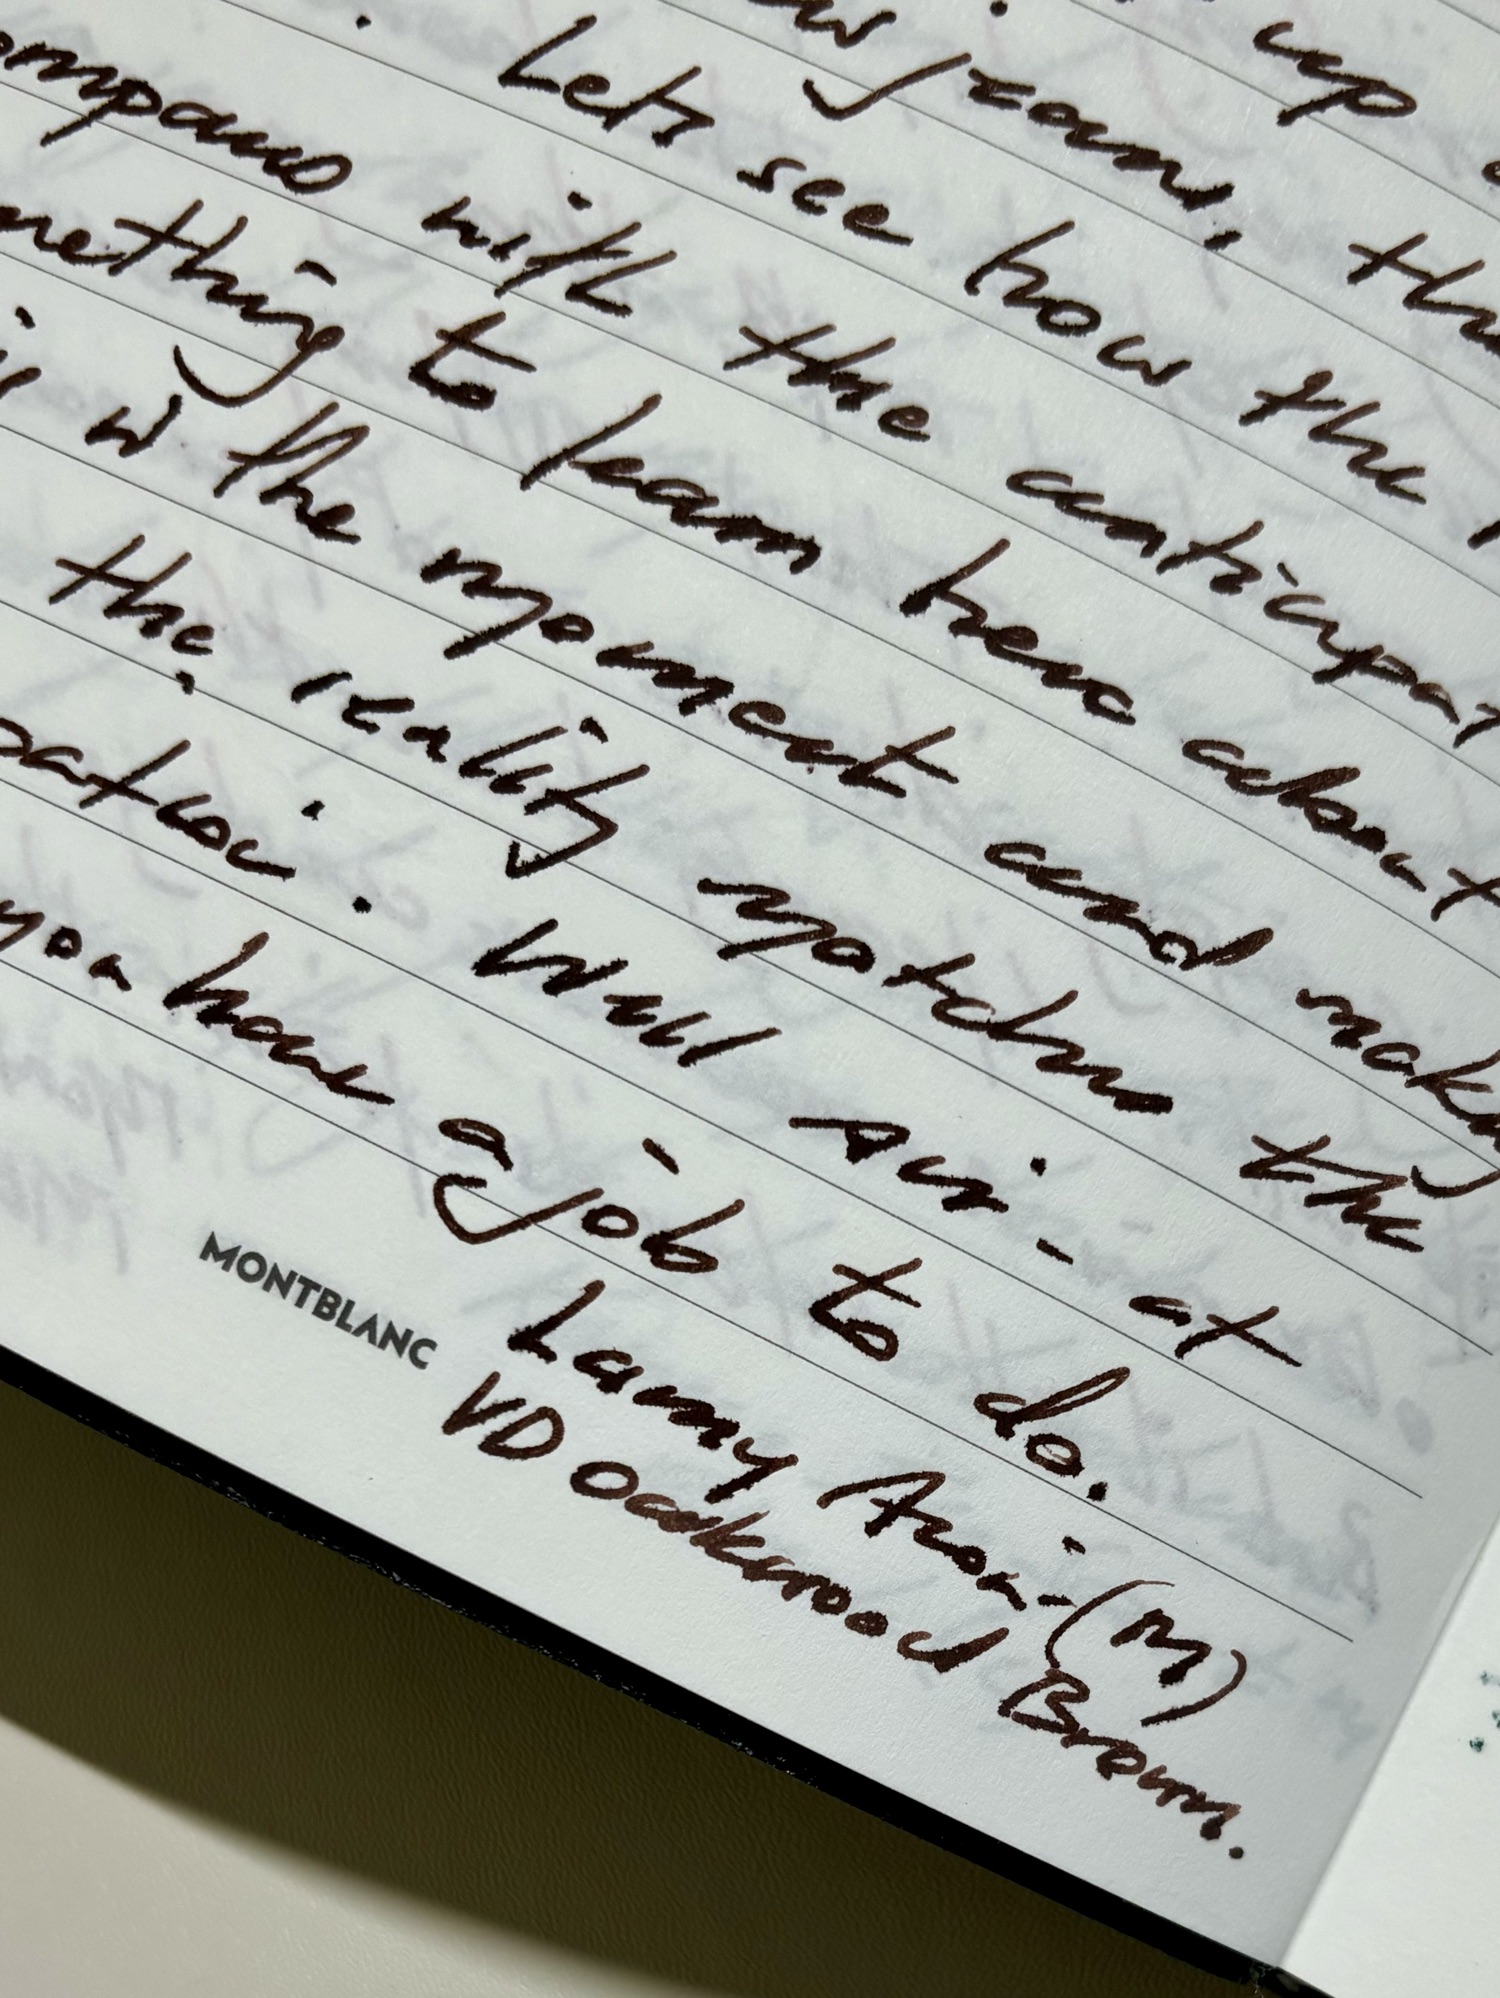 up
w years, th
. Lets see how the
ompares with the anticipat
mething to learn here about
is in the moment and making
the reality match the
pation. Well - at
you have a job to do.
MONTBLANC
Lamy Aion (M)
VD Oakwood Brown.